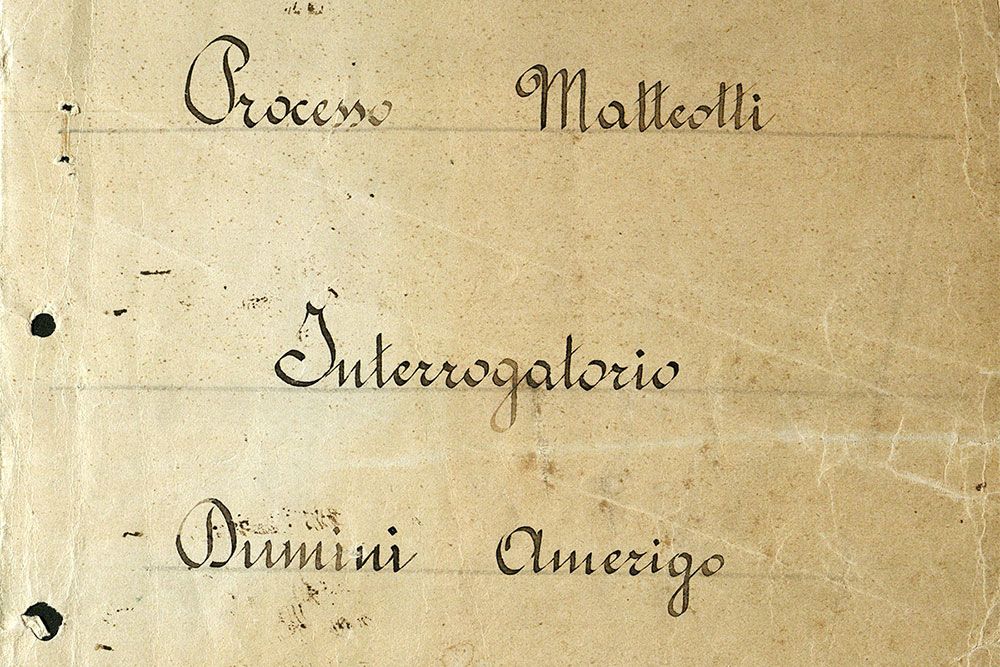 Processo Matteotti
Interrogatorio
Dumini Amerigo